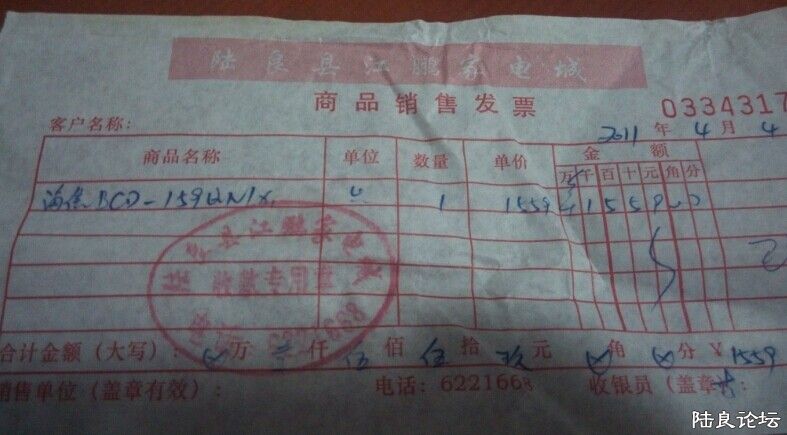 陆良县江鹏家电城
商品销售发票
0334317
客户名称:
2011年4月4
商品名称 单位 数量 单价 金额
万千百十元角分
BCD-159 1 1559 1559
陆良县江鹏家电城
收款专用章
合计金额(大写): 万 仟伍佰伍拾玖元 角 分 ¥1559
销售单位(盖章有效): 电话:6221668 收银员(盖章):
陆良论坛